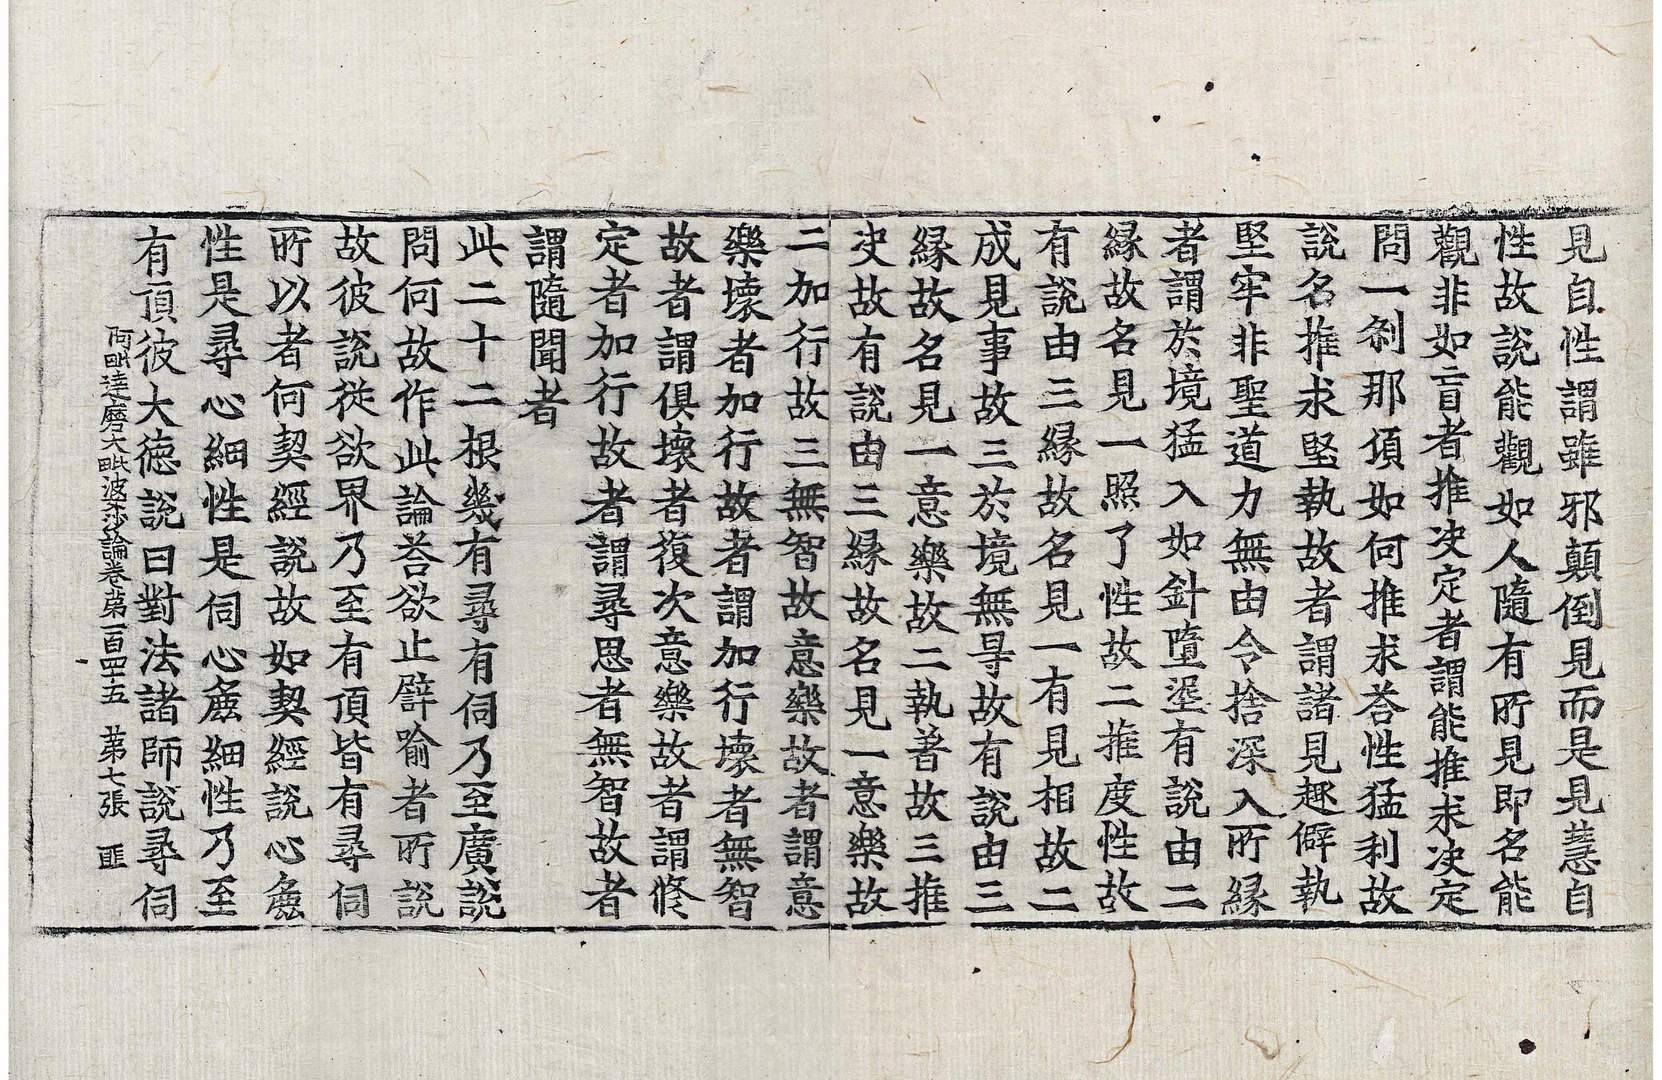 見自性謂雖邪顛倒見而是見慧自
性故說能觀如人隨有所見即名能
觀非如盲者推决定者謂能推求决定
問一刹那頃如何推求荅性猛利故
說名推求堅執故者謂諸見趣僻執
堅牢非聖道力無由令捨深入所縁
者謂於境猛入如針墮埿有說由二
縁故名見一照了性故二推度性故
有說由三縁故名見一有見相故二
成見事故三於境無㝵故有說由三
縁故名見一意樂故二執著故三推
决故有說由三縁故名見一意樂故
二加行故三無智故意樂故者謂意
樂壞者加行故者謂加行壞者無智
故者謂俱壞者復次意樂故者謂修
定者加行故者謂尋思者無智故者
謂隨聞者
此二十二根幾有尋有伺乃至廣說
問何故作此論荅欲止譬喻者所說
故彼說從欲界乃至有頂皆有尋伺
所以者何契經說故如契經說心麁
性是尋心細性是伺心麁細性乃至
有頂彼大德說曰對法諸師說尋伺
阿毗達磨大毗婆沙論卷第一百四十五 第七張 匪